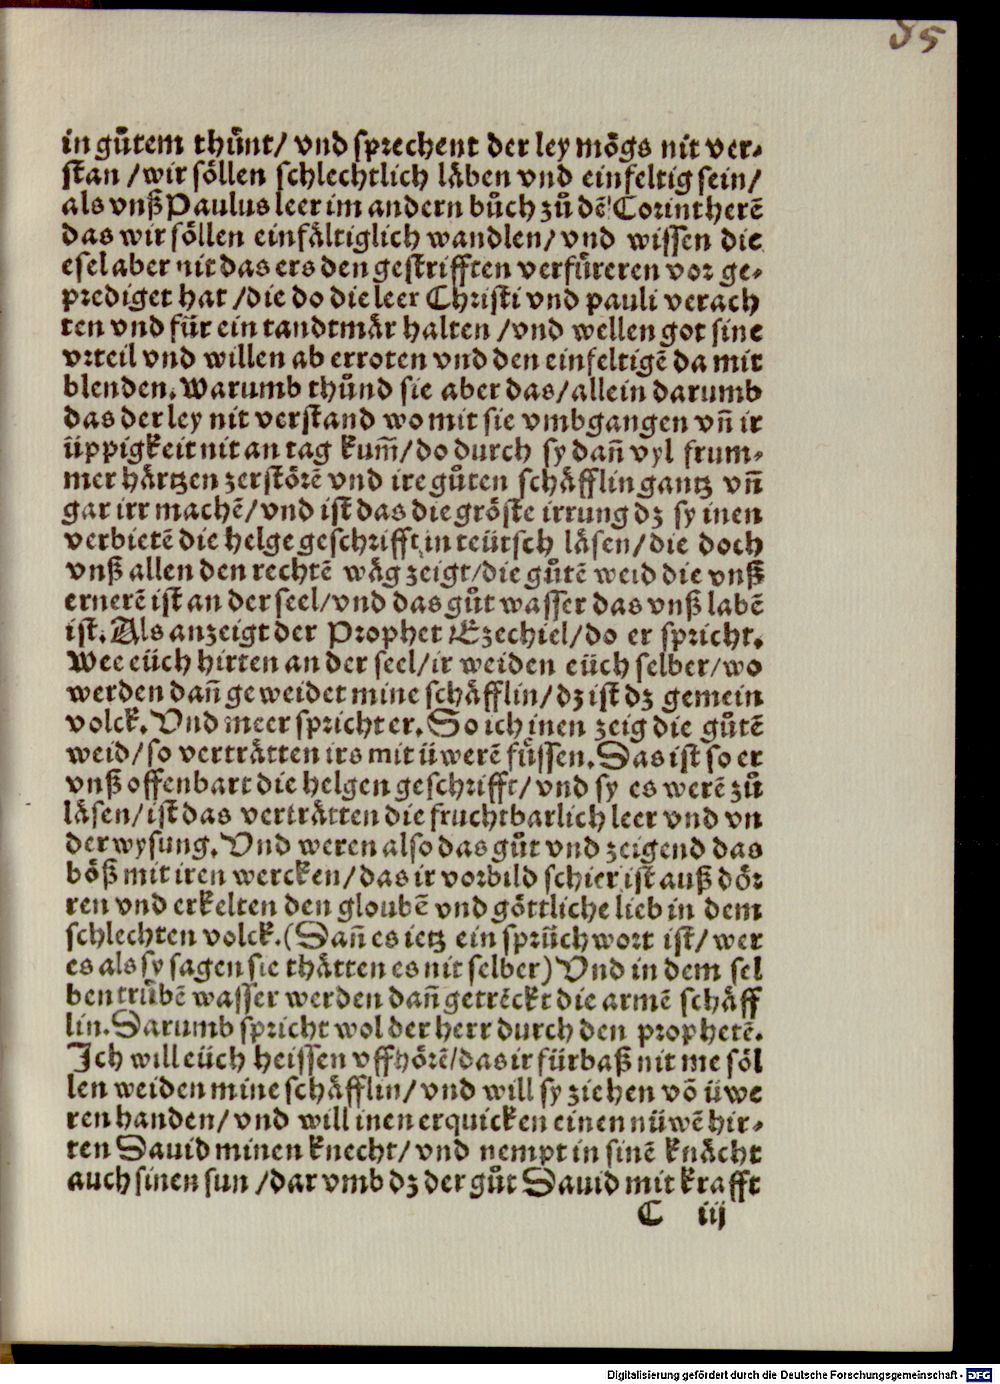 85
in gůtem thůnt/ vnd sprechent der ley mögs nit ver⸗
stan /wir söllen schlechtlich läben vnd einfeltig sein/
als vnß Paulus leer im andern bůch zů dē Corintherē
das wir söllen einfältiglich wandlen/ vnd wissen die
esel aber nit das ers den gestrifften verfüreren vor ge⸗
prediget hat /die do die leer Christi vnd pauli verach
ten vnd für ein tandtmär halten /vnd wellen got sine
vrteil vnd willen ab erroten vnd den einfeltigē da mit
blenden. Warumb thůnd sie aber das/ allein darumb
das der ley nit verstand wo mit sie vmbgangen vn̄ ir
üppigkeit nit an tag kum̄/ do durch sy dan̄ vyl frum⸗
mer härtzen zerstörē vnd ire gůten schäfflin gantz vn̄
gar irr machē/ vnd ist das die gröste irrung dz sy inen
verbietē die helge geschrifft in teütsch läsen/ die doch
vnß allen den rechtē wäg zeigt/ die gůtē weid die vnß
ernerē ist an der seel/ vnd das gůt wasser das vnß labē
ist. Als anzeigt der Prophet Ezechiel/ do er spricht.
Wee eüch hirten an der seel/ ir weiden eüch selber/ wo
werden dan̄ geweidet mine schäfflin/ dz ist dz gemein
volck. Vnd meer spricht er. So ich inen zeig die gůtē
weid/ so verträtten irs mit üwerē füssen. Das ist so er
vnß offenbart die helgen geschrifft/ vnd sy es werē zů
läsen/ ist das verträtten die fruchtbarlich leer vnd vn
derwysung. Vnd weren also das gůt vnd zeigend das
böß mit iren wercken/ das ir vorbild schier ist auß dör
ren vnd erkelten den gloubē vnd göttliche lieb in dem
schlechten volck. (Dan̄ es ietz ein sprüchwort ist/ wer
es als sy sagen sie thätten es nit selber) Vnd in dem sel
ben trübē wasser werden dan̄ getrēckt die armē schäff
lin. Darumb spricht wol der herr durch den prophetē.
Ich will eüch heissen vffhörē/ das ir fürbaß nit me söl
len weiden mine schäfflin/ vnd will sy ziehen vō üwe
ren handen/ vnd will inen erquicken einen nüwē hir⸗
ten Dauid minen knecht/ vnd nempt in sinē knächt
auch sinen sun /dar vmb dz der gůt Dauid mit krafft
C iij
Digitalisierung gefördert durch die Deutsche Forschungsgemeinschaft - DFG